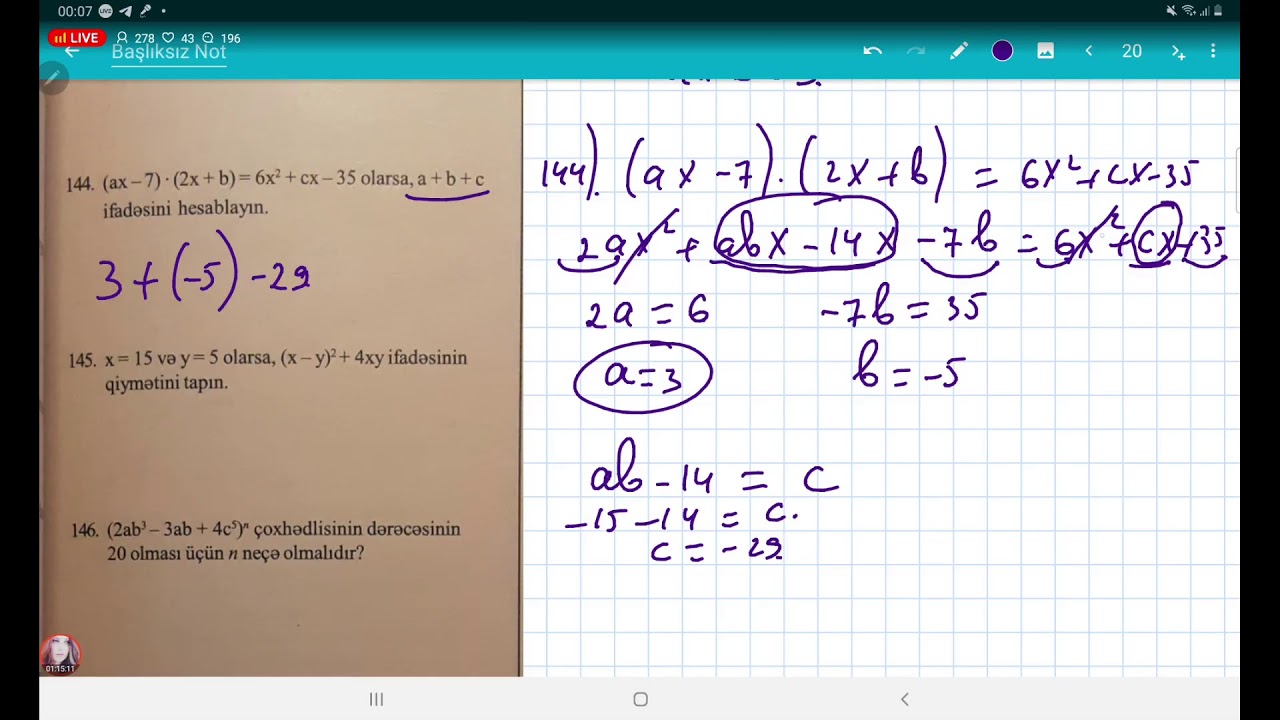 00:07
LIVE 278 43 196
Başlıksız Not
20
144. (ax – 7) · (2x + b) = 6x² + cx – 35 olarsa, a + b + c
ifadəsini hesablayın.
3 + (-5) - 29
145. x = 15 və y = 5 olarsa, (x – y)² + 4xy ifadəsinin
qiymətini tapın.
146. (2ab³ – 3ab + 4c⁵)ⁿ çoxhədlisinin dərəcəsinin
20 olması üçün n neçə olmalıdır?
01:15:11
144). (ax - 7) · (2x + b) = 6x² + cx - 35
2ax² + abx - 14x - 7b = 6x² + cx + 35
2a = 6 -7b = 35
a = 3 b = -5
ab - 14 = c
-15 - 14 = c.
c = -29